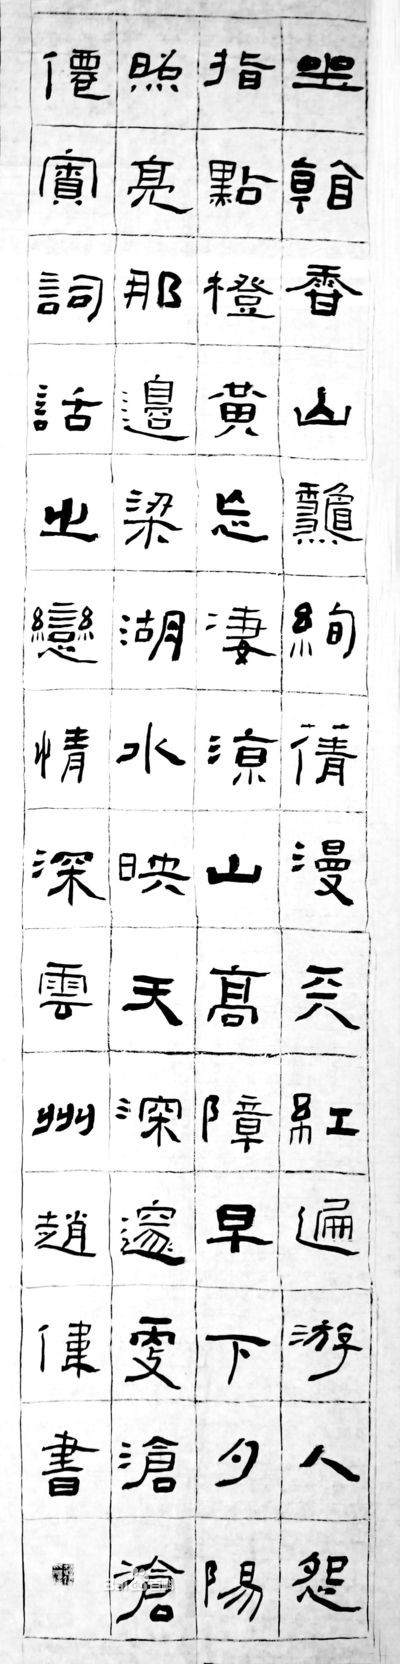 翰香山絢蒨漫天紅遍游人怨
指點橙黃忘淒涼山高障早下夕陽
照亮那邊梁湖水映天深邃雯滄滄
僊賓詞話之戀情深雲州趙健書